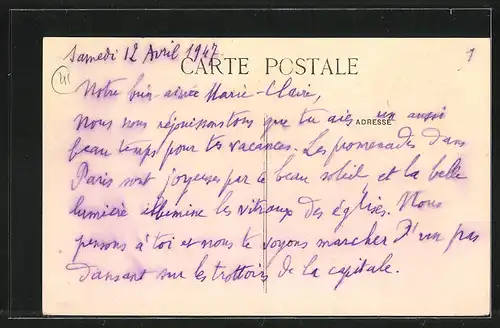 Samedi 12 Avril 1947
CARTE POSTALE
1
Notre bien-aimée Marie-Claire,
Nous nous réjouissons tous que tu aies un aussi
ADRESSE
beau temps pour tes vacances. Les promenades dans
Paris sont joyeuses par ce beau soleil et la belle
lumière illumine les vitraux des églises. Nous
pensons à toi et nous te voyons marcher d'un pas
dansant sur les trottoirs de la capitale.